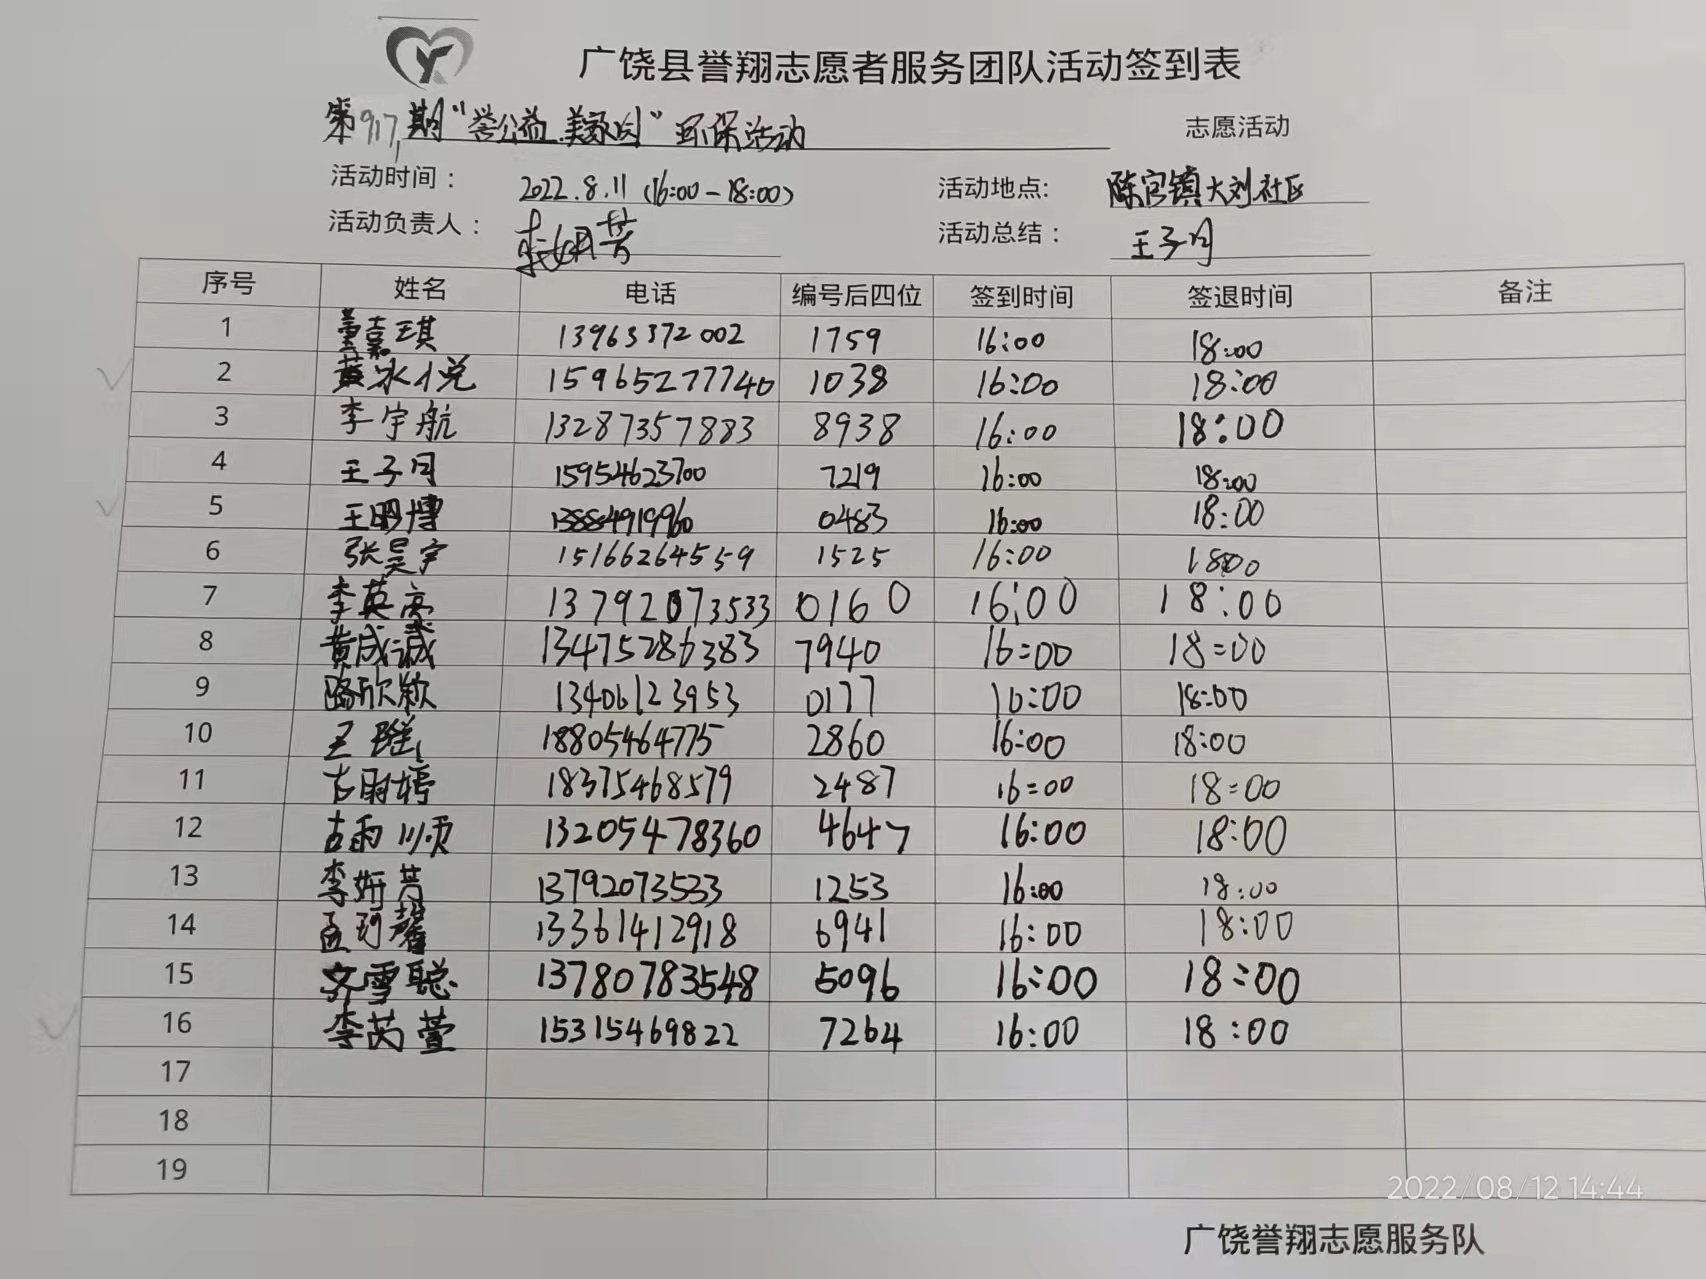 广饶县誉翔志愿者服务团队活动签到表
第917期“誉公益 美家园”环保活动 志愿活动
活动时间： 2022.8.11 (16:00-18:00) 活动地点: 陈官镇大刘社区
活动负责人： 李妍芳 活动总结： 王子月
序号 姓名 电话 编号后四位 签到时间 签退时间 备注
1 董嘉琪 13963372002 1759 16:00 18:00
2 黄水悦 15965277740 1038 16:00 18:00
3 李宇航 13287357883 8938 16:00 18:00
4 王子月 15954623700 7219 16:00 18:00
5 王明博 13884919960 0483 16:00 18:00
6 张昊宇 15166264559 1525 16:00 1800
7 李英亮 13792073533 0160 16:00 18:00
8 黄成诚 13475286383 7940 16:00 18:00
9 路欣颖 13406123953 0177 16:00 18:00
10 王瑶 18805464775 2860 16:00 18:00
11 古雨婷 18375468579 2487 16:00 18:00
12 古雨顺 13205478360 4647 16:00 18:00
13 李妍芳 13792073533 1253 16:00 18:00
14 孟珂馨 13361412918 6941 16:00 18:00
15 齐雪聪 13780783548 5096 16:00 18:00
16 李芮萱 15315469822 7264 16:00 18:00
17
18
19
2022/08/12 14:44
广饶誉翔志愿服务队